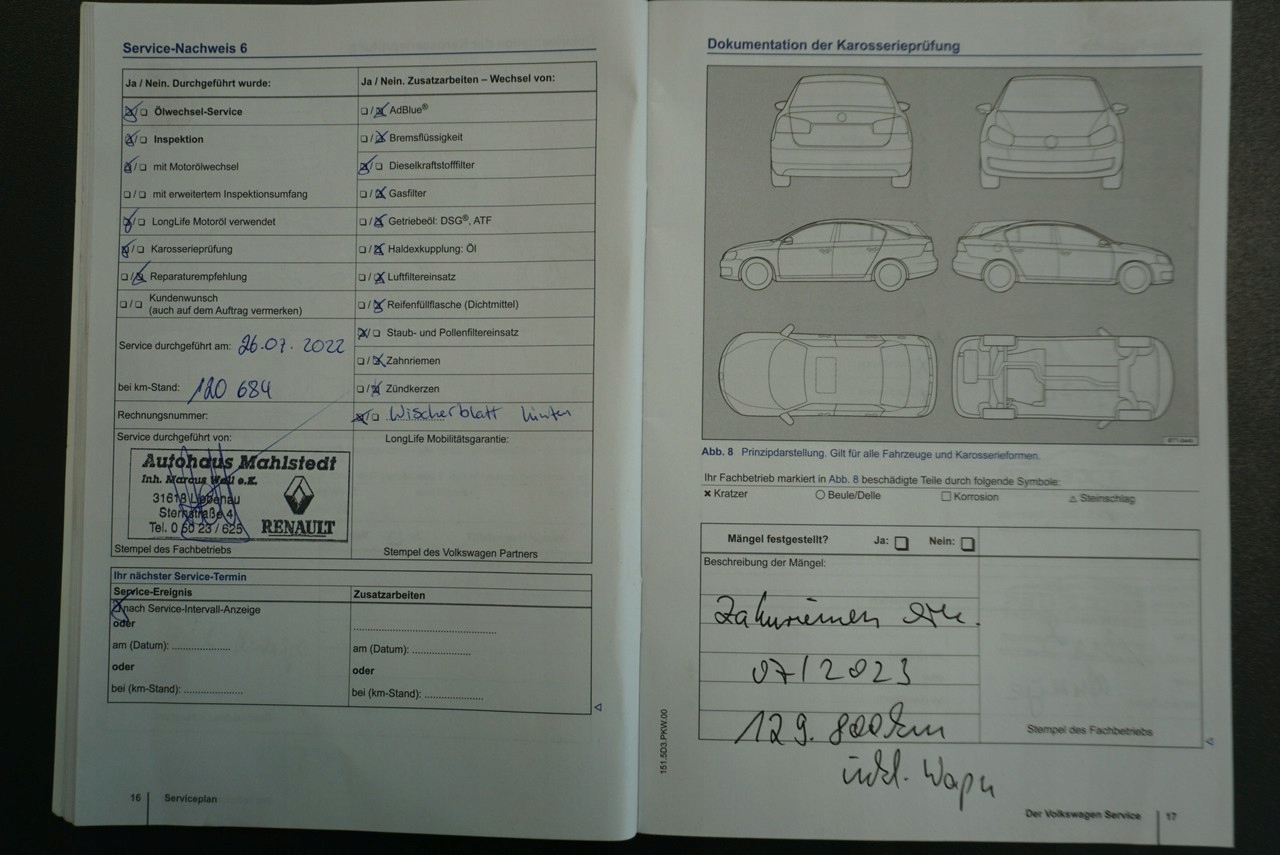 Service-Nachweis 6
Ja / Nein. Durchgeführt wurde:
Ölwechsel-Service
Inspektion
mit Motorölwechsel
mit erweitertem Inspektionsumfang
LongLife Motoröl verwendet
Karosserieprüfung
Reparaturempfehlung
Kundenwunsch
(auch auf dem Auftrag vermerken)
Service durchgeführt am: 26.07.2022
bei km-Stand: 120 684
Rechnungsnummer:
Service durchgeführt von:
Autohaus Mahlstedt
Inh. Marcus Woll e.K.
31618 Liebenau
Sternstraße 4
Tel. 0 50 23 / 625
RENAULT
Stempel des Fachbetriebs
Ja / Nein. Zusatzarbeiten – Wechsel von:
AdBlue®
Bremsflüssigkeit
Dieselkraftstofffilter
Gasfilter
Getriebeöl: DSG®, ATF
Haldexkupplung: Öl
Luftfiltereinsatz
Reifenfüllflasche (Dichtmittel)
Staub- und Pollenfiltereinsatz
Zahnriemen
Zündkerzen
Wischerblatt hinten
LongLife Mobilitätsgarantie:
Stempel des Volkswagen Partners
Ihr nächster Service-Termin
Service-Ereignis
nach Service-Intervall-Anzeige
oder
am (Datum): ....................
oder
bei (km-Stand): ....................
Zusatzarbeiten
am (Datum): ....................
oder
bei (km-Stand): ....................
16
Serviceplan
Dokumentation der Karosserieprüfung
Abb. 8 Prinzipdarstellung. Gilt für alle Fahrzeuge und Karosserieformen.
Ihr Fachbetrieb markiert in Abb. 8 beschädigte Teile durch folgende Symbole:
× Kratzer ○ Beule/Delle □ Korrosion △ Steinschlag
Mängel festgestellt? Ja: Nein:
Beschreibung der Mängel:
Zahnriemen
07/2023
129.800km
inkl. Wapu
Stempel des Fachbetriebs
151.5D3.PKW.00
Der Volkswagen Service
17